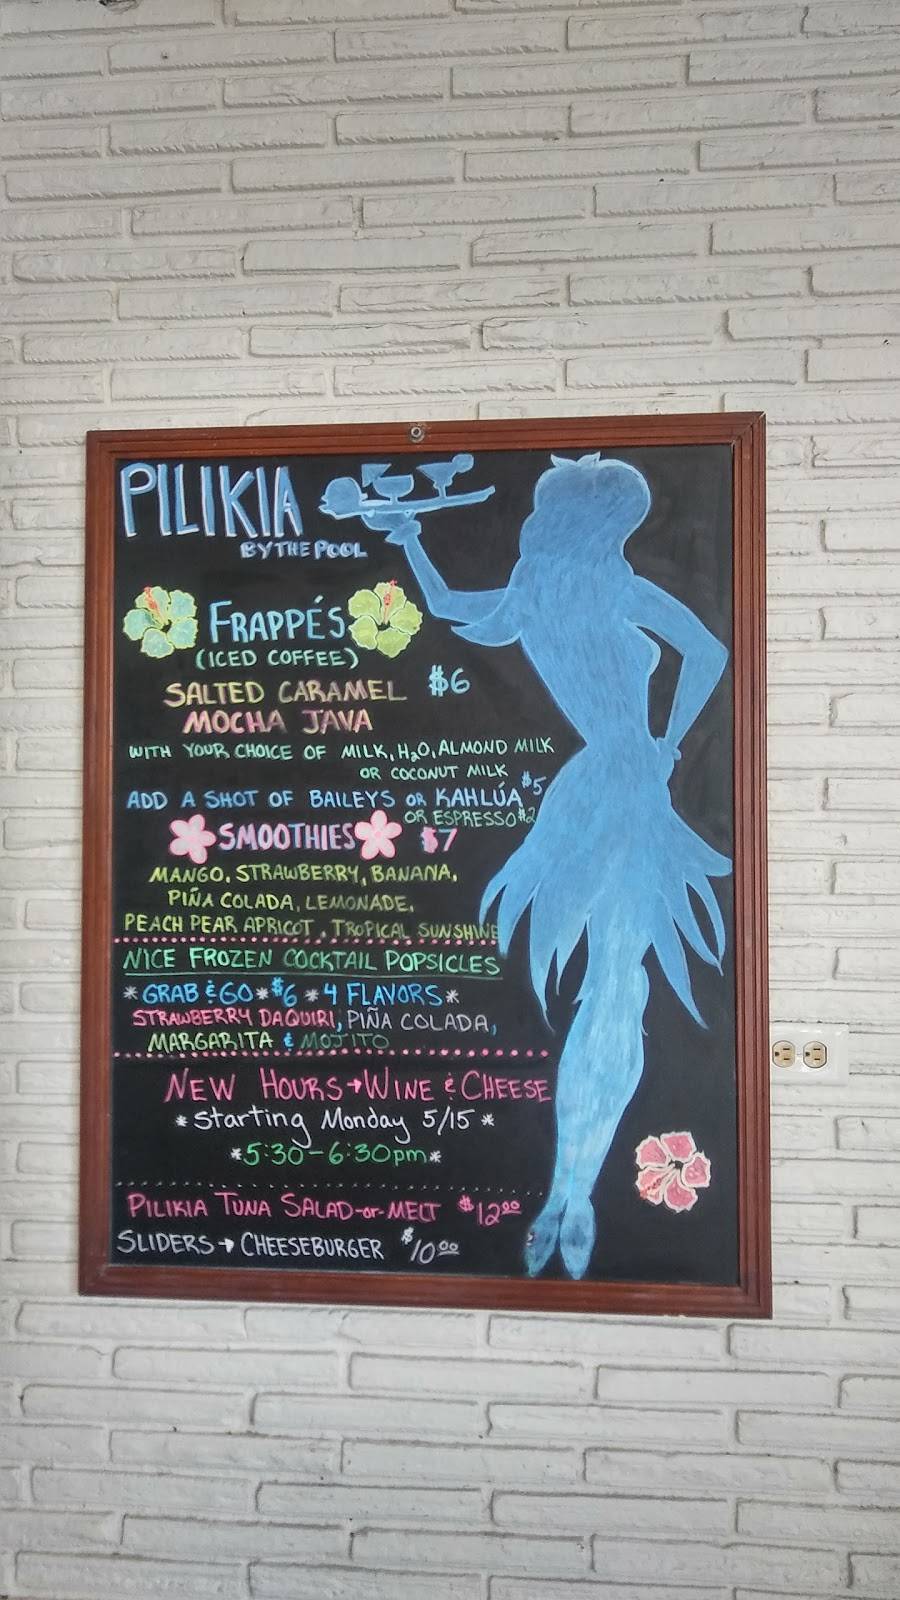 PILIKIA
BY THE POOL
FRAPPÉS
(ICED COFFEE)
SALTED CARAMEL $6
MOCHA JAVA
WITH YOUR CHOICE OF MILK, H₂O, ALMOND MILK
OR COCONUT MILK
ADD A SHOT OF BAILEYS OR KAHLÚA $5
OR ESPRESSO $2
SMOOTHIES $7
MANGO, STRAWBERRY, BANANA,
PIÑA COLADA, LEMONADE,
PEACH PEAR APRICOT, TROPICAL SUNSHINE
NICE FROZEN COCKTAIL POPSICLES
*GRAB & GO*$6*4 FLAVORS*
STRAWBERRY DAQUIRI, PIÑA COLADA,
MARGARITA & MOJITO
NEW HOURS→WINE & CHEESE
*Starting Monday 5/15*
*5:30-6:30pm*
PILIKIA TUNA SALAD-or-MELT $12.00
SLIDERS→CHEESEBURGER $10.00